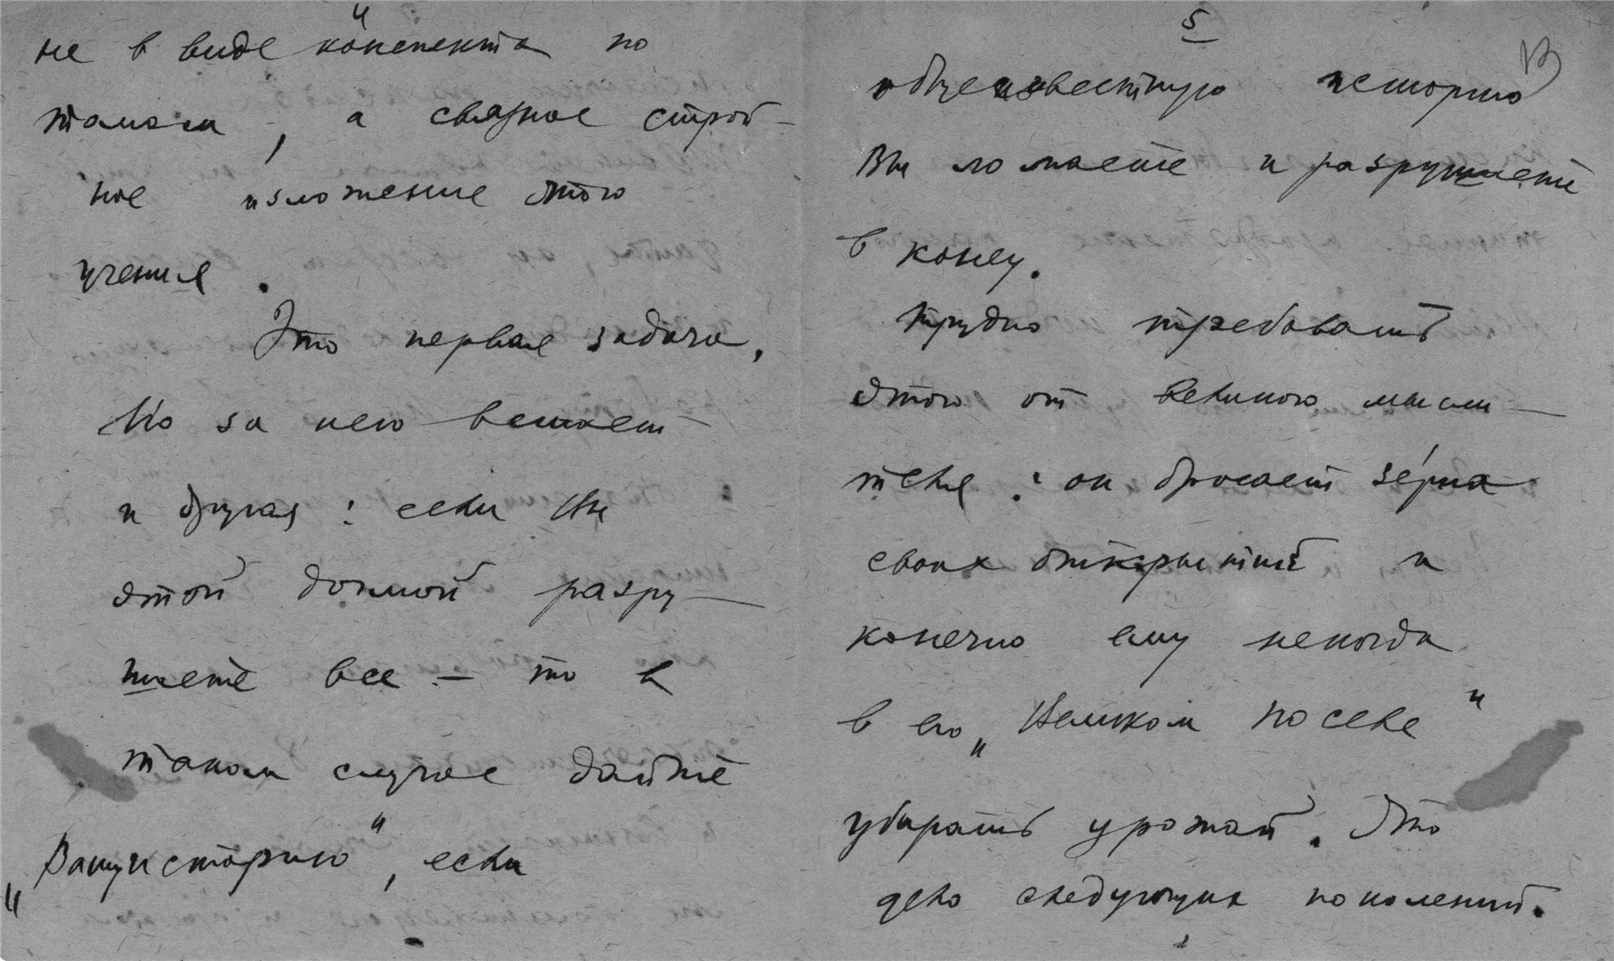 не в виде „конспекта по
томам“, а связное строй–
ное изложение этого
учения.
Это первая задача.
Но за нею встает
и другая: если Вы
этой догмой разру–
шаете все – то в
таком случае дайте
„Вашу историю“, если
5
общеизвестную историю
Вы ломаете и разрушаете
в конец.
Трудно требовать
этого от великого мысли–
теля: он бросает зёрна
своих открытий и
конечно ему некогда
в его „Великом посеве“
убирать урожай. Это
дело следующих поколений.